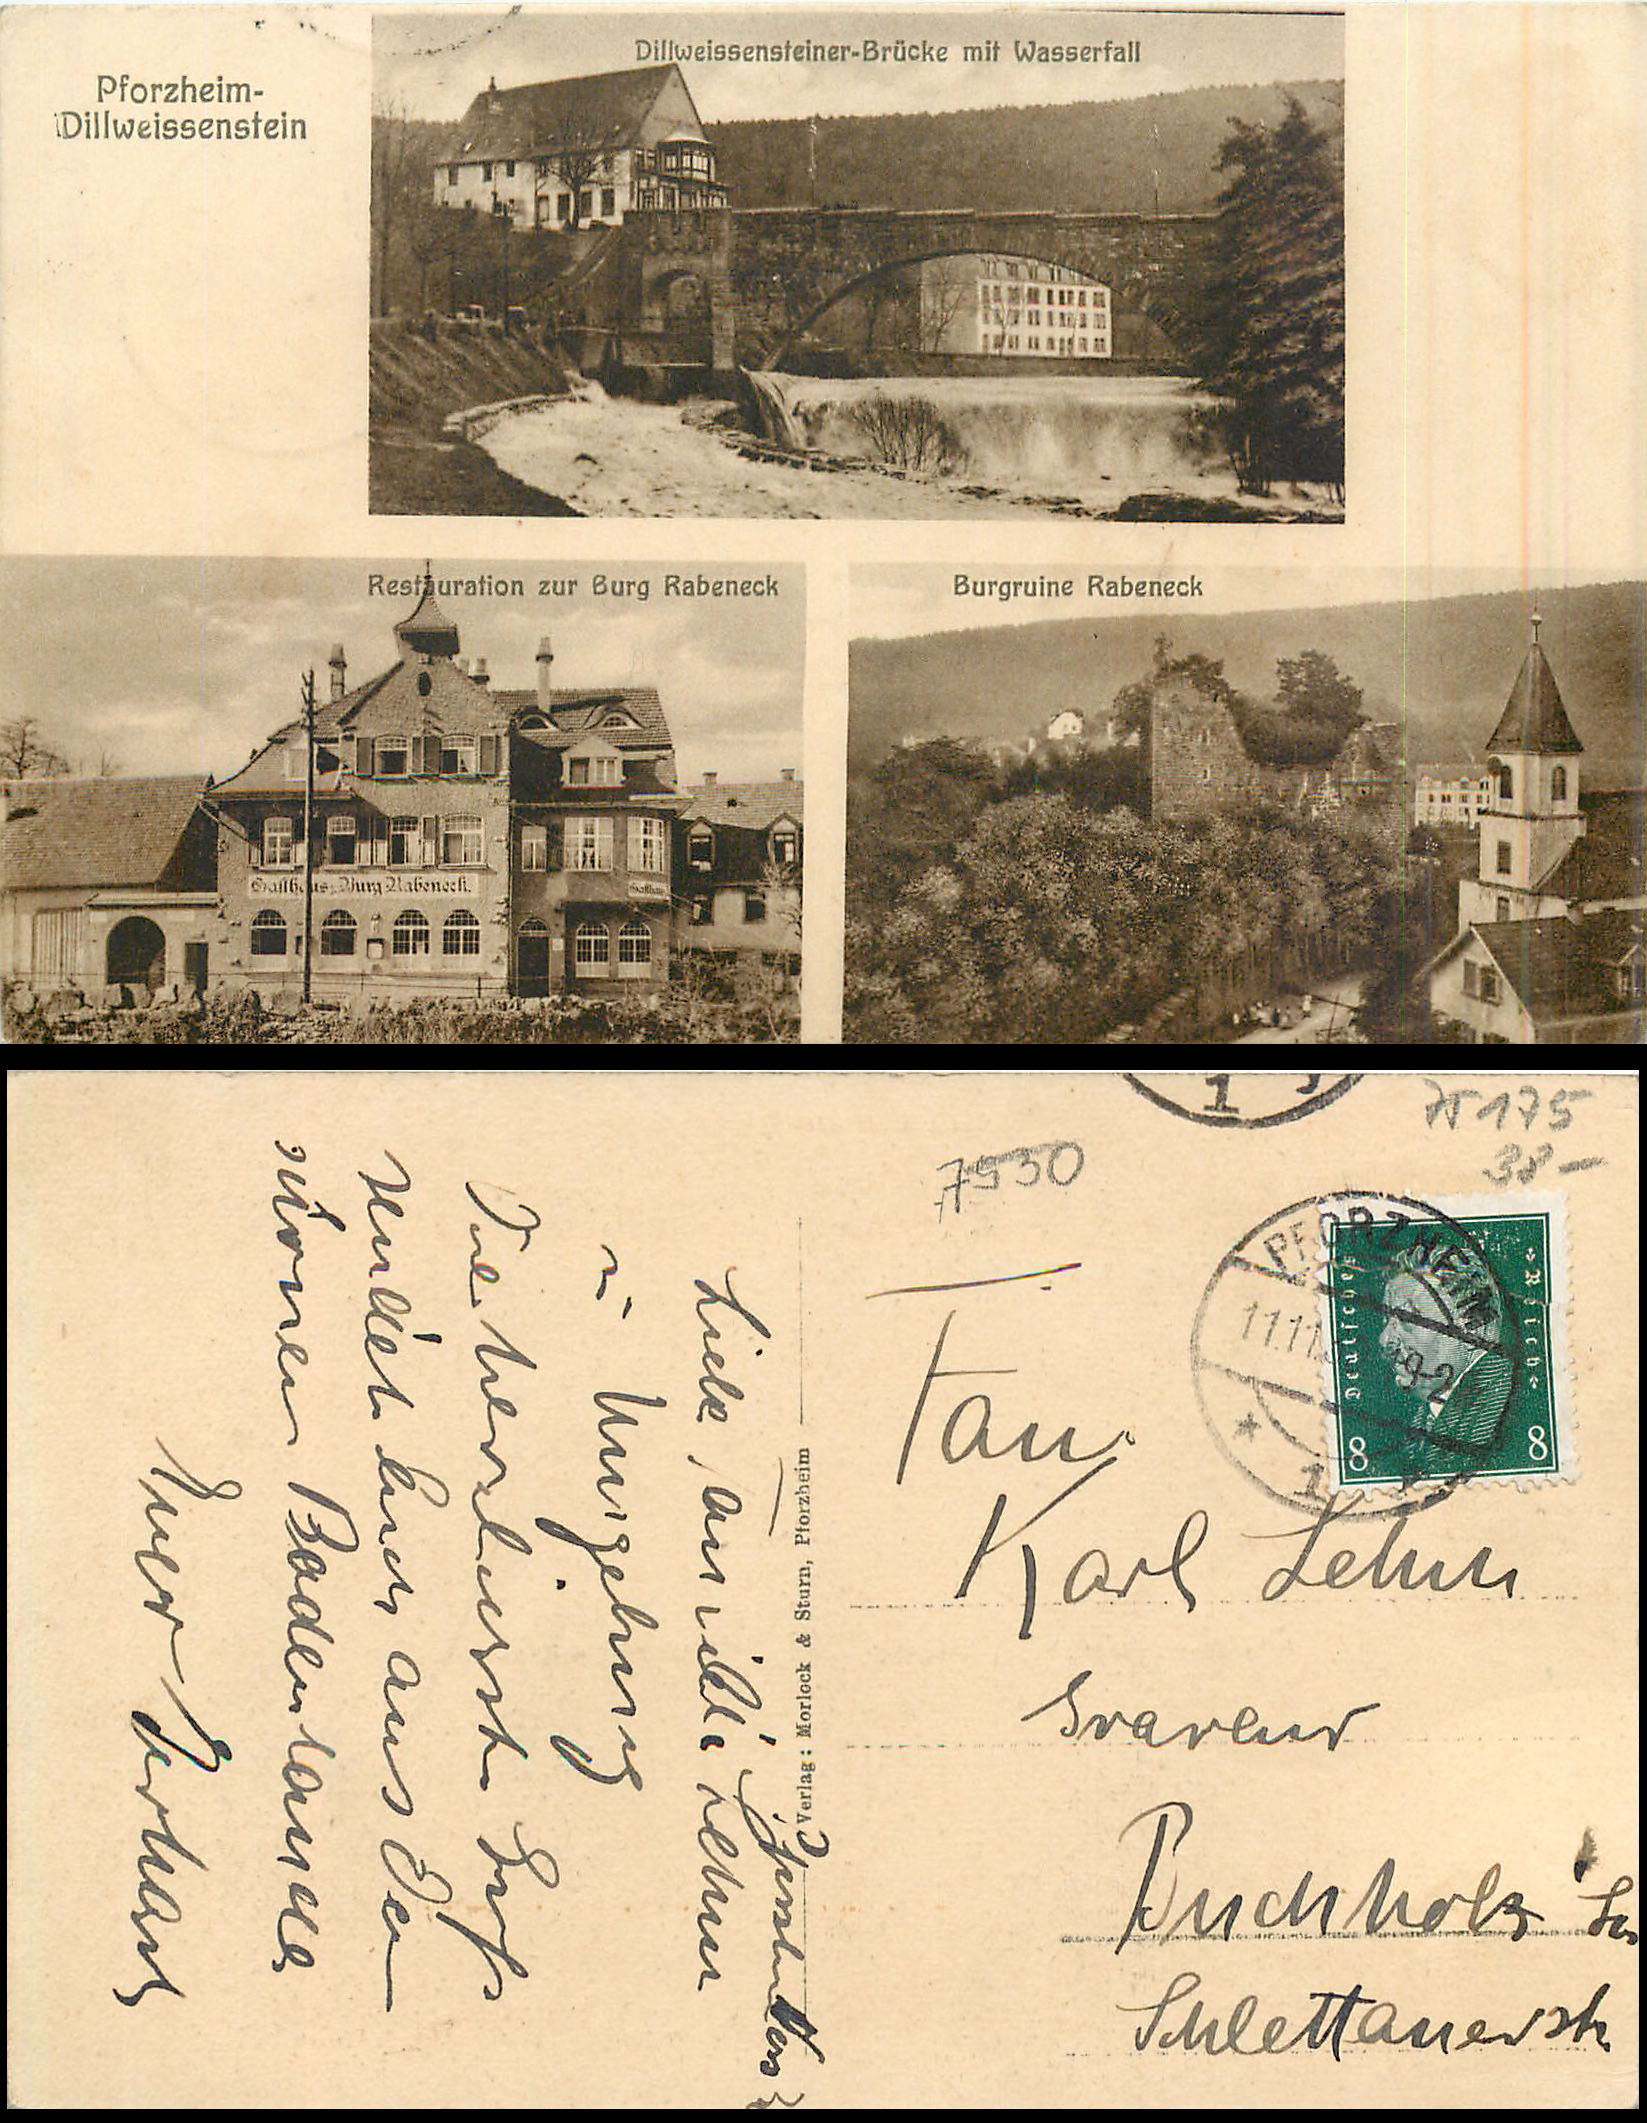 Pforzheim-
Dillweissenstein
Dillweissensteiner-Brücke mit Wasserfall
Restauration zur Burg Rabeneck
Gasthaus z. Burg Rabeneck.
Gasthaus
Burgruine Rabeneck
1
7530
175
38-
PFORZHEIM
11.11.
9-2
* 1
Deutsches Reich
8 8
Fam.
Karl Lehm
Graveur
Buchholz
Schlettauerstr
Verlag: Morlock & Sturn, Pforzheim
Liebe Familie Lehm
u Umgebung
Die herzlichste Grüße
sendet Euch aus dem
schönen Badenlande
Euer